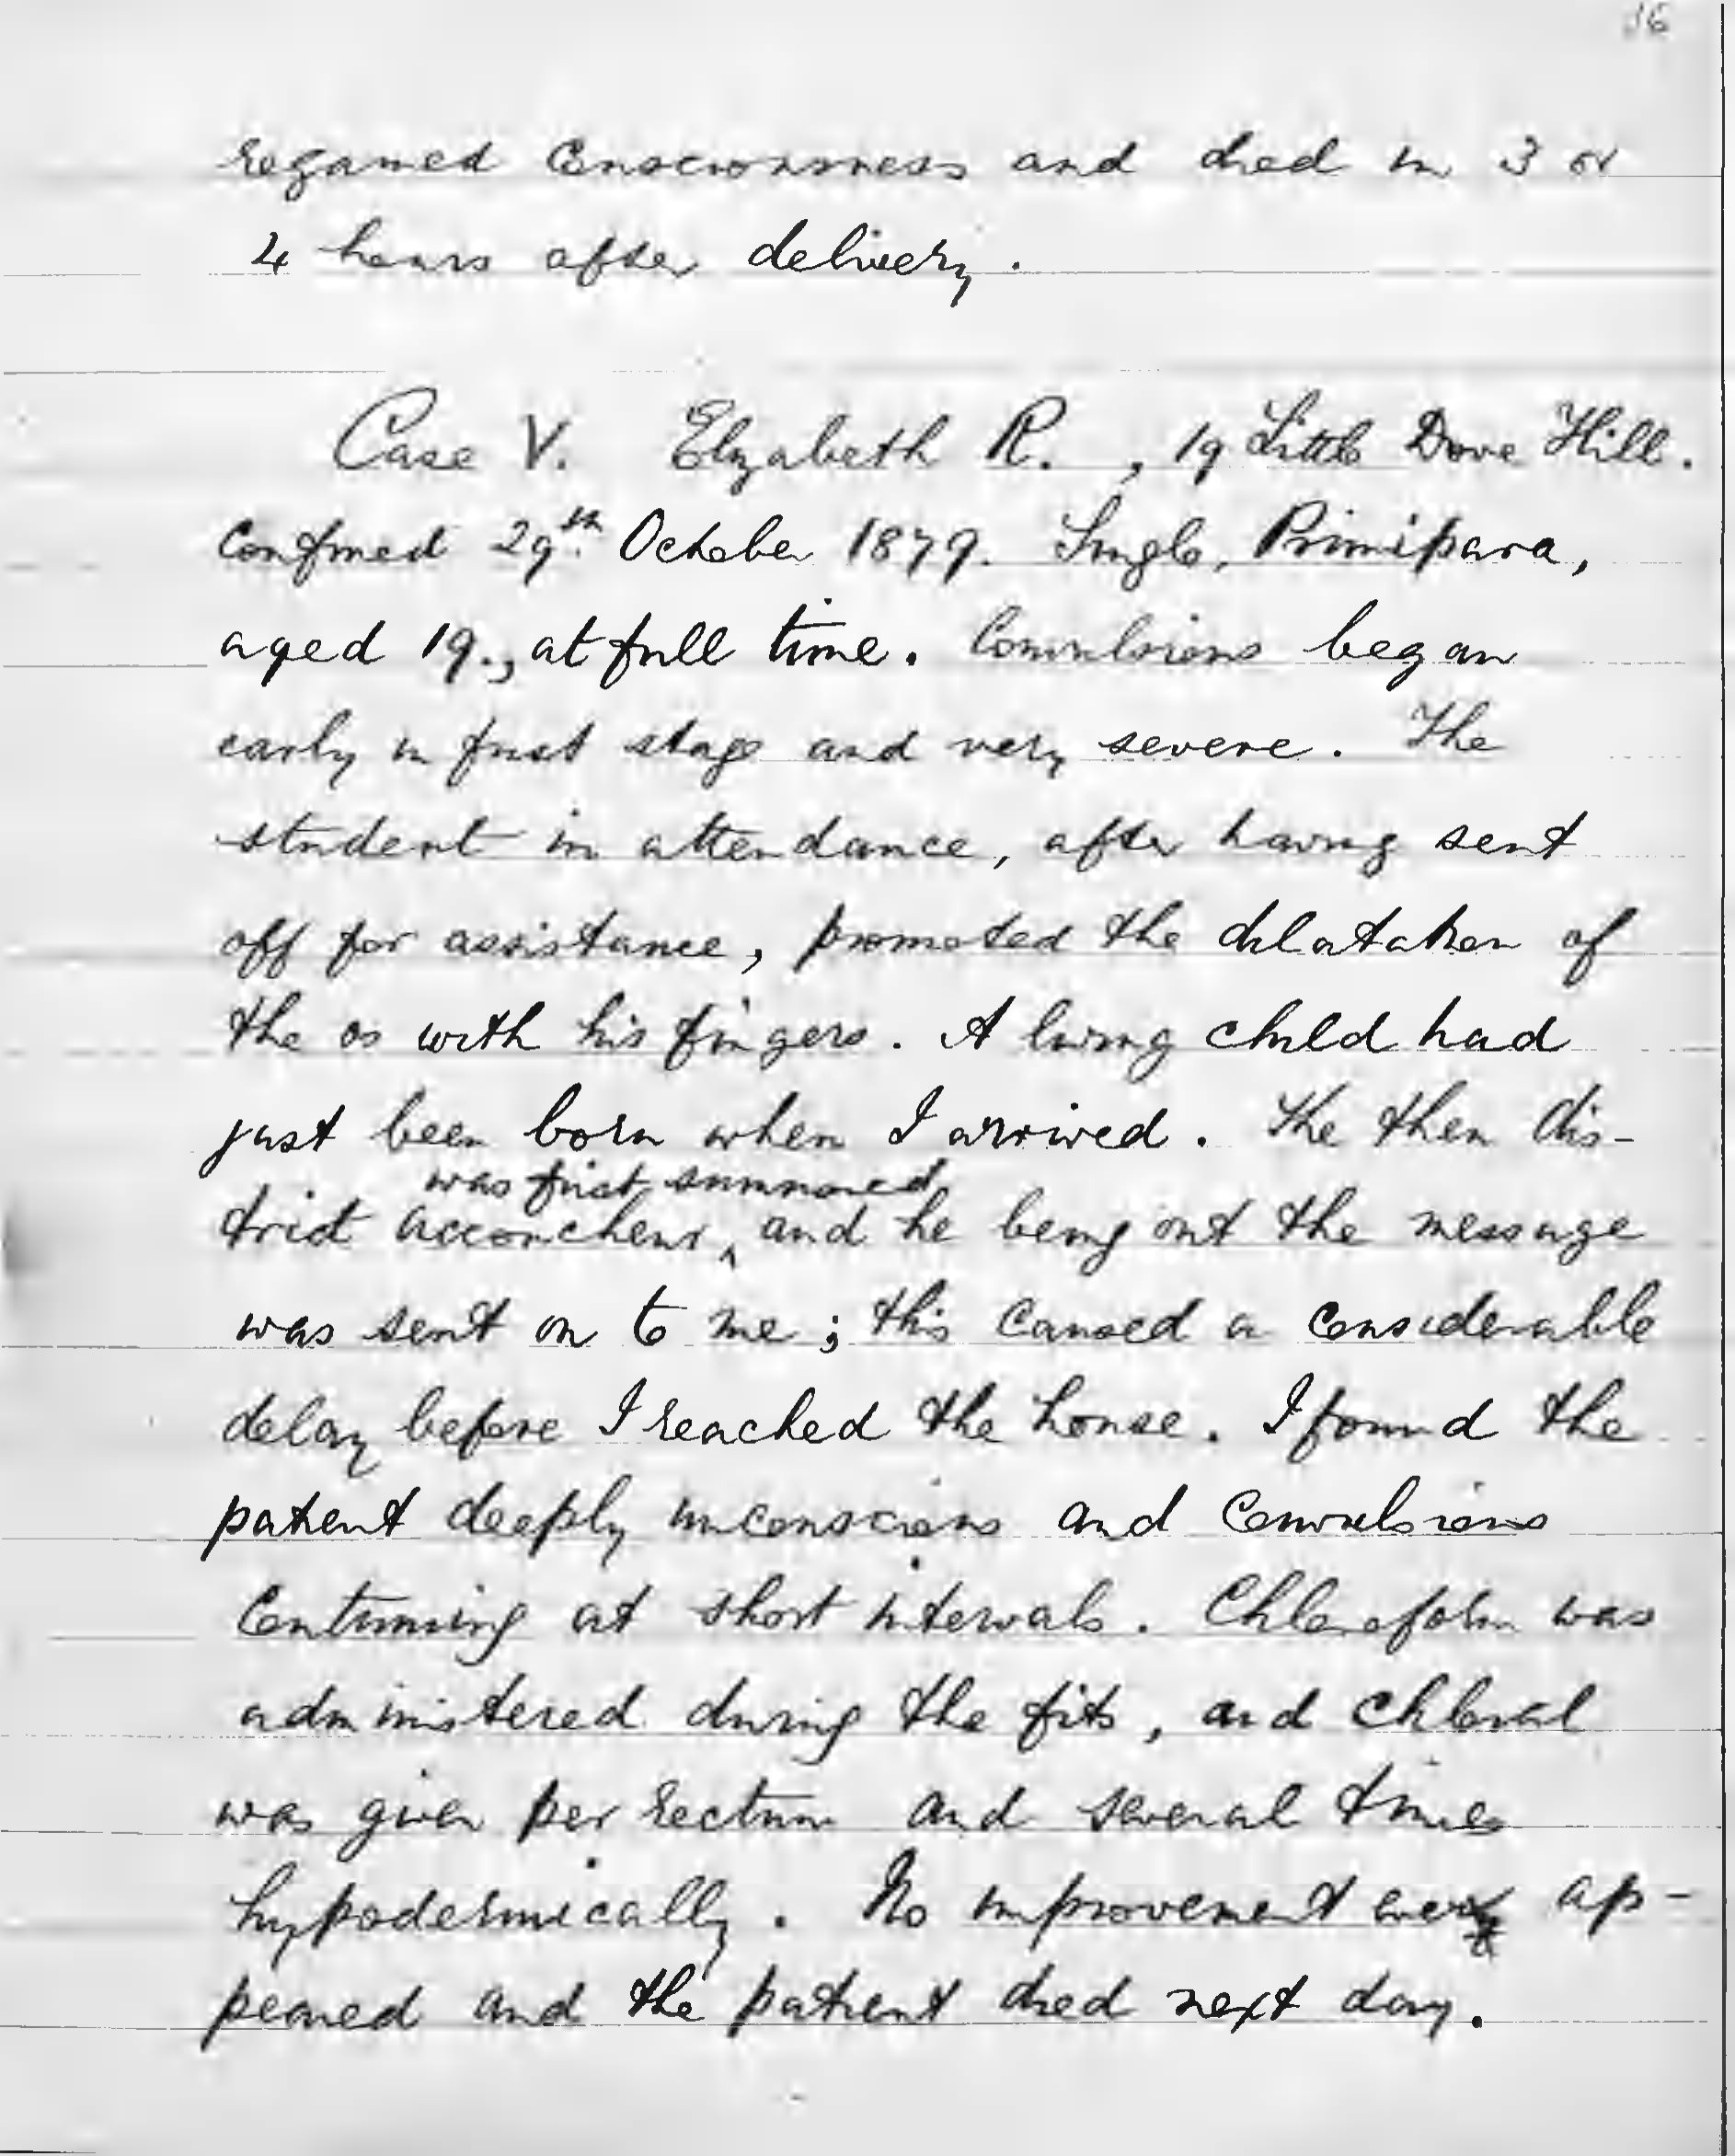 16
regained consciousness and died in 3 or
4 hours after delivery.
Case V. Elizabeth R. , 19 Little Dove Hill.
Confined 29th October 1879. Single, Primipara,
aged 19., at full time. Convulsions began
early in first stage and very severe. The
student in attendance, after having sent
off for assistance, promoted the dilatation of
the os with his fingers. A living child had
just been born when I arrived. The then dis-
was first summoned
trict accoucheur, and he being out the message
was sent on to me; this caused a considerable
delay before I reached the house. I found the
patient deeply unconscious and convulsions
continuing at short intervals. Chloroform was
administered during the fits, and chloral
was given per rectum and several times
hypodermically. No improvement ever ap-
peared and the patient died next day.